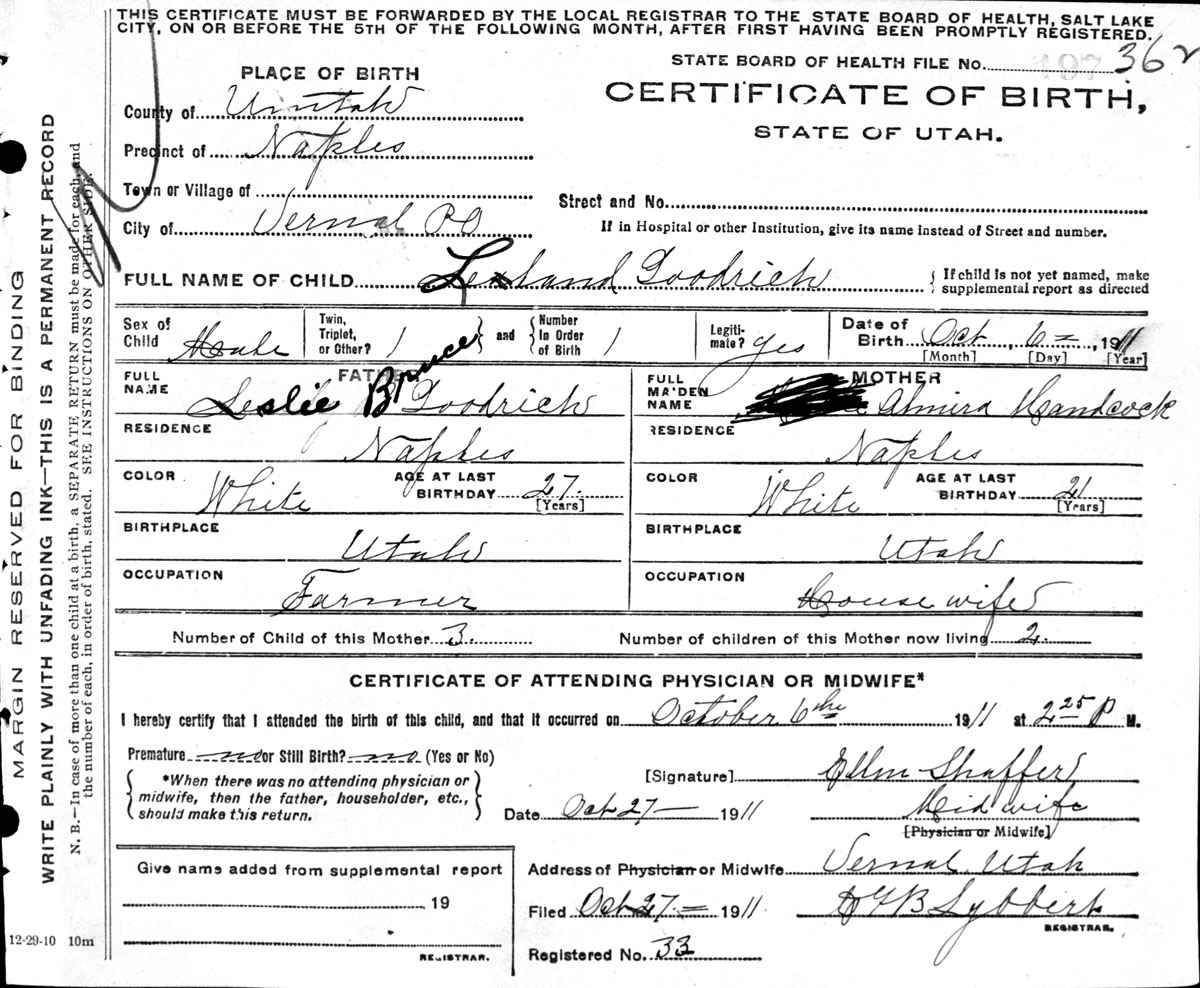 THIS CERTIFICATE MUST BE FORWARDED BY THE LOCAL REGISTRAR TO THE STATE BOARD OF HEALTH, SALT LAKE
CITY, ON OR BEFORE THE 5TH OF THE FOLLOWING MONTH, AFTER FIRST HAVING BEEN PROMPTLY REGISTERED.
STATE BOARD OF HEALTH FILE No. 197 362
CERTIFICATE OF BIRTH,
STATE OF UTAH.
PLACE OF BIRTH
County of Uintah
Precinct of Naples
Town or Village of
City of Vernal PO
Street and No.
If in Hospital or other Institution, give its name instead of Street and number.
FULL NAME OF CHILD Goodrich
{ If child is not yet named, make
supplemental report as directed
Sex of Child Male
Twin, Triplet, or Other? 1 } and { Number In Order of Birth 1
Legitimate? yes
Date of Birth Oct 6 =, 1911
[Month] [Day] [Year]
FATHER
FULL NAME Leslie Bruce Goodrich
RESIDENCE Naples
COLOR White AGE AT LAST BIRTHDAY 27 [Years]
BIRTHPLACE Utah
OCCUPATION Farmer
MOTHER
FULL MAIDEN NAME Almira Handcock
RESIDENCE Naples
COLOR White AGE AT LAST BIRTHDAY 21 [Years]
BIRTHPLACE Utah
OCCUPATION House wife
Number of Child of this Mother 3. Number of children of this Mother now living 2.
CERTIFICATE OF ATTENDING PHYSICIAN OR MIDWIFE*
I hereby certify that I attended the birth of this child, and that it occurred on October 6the 1911 at 2 25 P M.
Premature no or Still Birth? no (Yes or No)
{ *When there was no attending physician or
midwife, then the father, householder, etc.,
should make this return. }
[Signature] Ellen Shaffer
Date Oct 27 — 1911 Midwife
[Physician or Midwife]
Give name added from supplemental report
19
REGISTRAR.
Address of Physician or Midwife Vernal Utah
Filed Oct 27 = 1911 Lybbert
REGISTRAR.
Registered No. 33
12-29-10 10m
MARGIN RESERVED FOR BINDING
WRITE PLAINLY WITH UNFADING INK—THIS IS A PERMANENT RECORD
N. B.—In case of more than one child at a birth, a SEPARATE RETURN must be made for each, and
the number of each, in order of birth, stated. SEE INSTRUCTIONS ON OTHER SIDE.